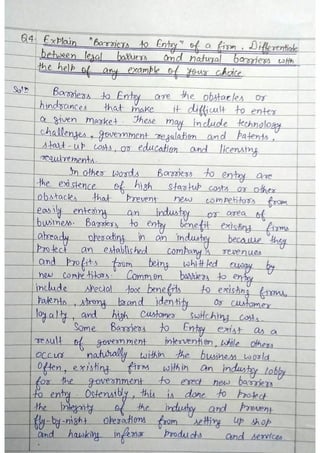 Q4. Explain "Barriers to Entry" of a firm. Differentiate
between legal barriers and natural barriers with
the help of any example of your choice
Solⁿ Barriers to Entry are the obstacles or
hindrances that make it difficult to enter
a given market. These may include technology
challenges, government regulation and Patents,
start-up costs, or education and licensing
requirements.
In other words Barriers to entry are
the existence of high startup costs or other
obstacles that prevent new competitors from
easily entering an industry or area of
business. Barriers to entry benefit existing firms
already operating in an industry because they
protect an established company's revenues
and profits from being whittled away by
new competitors. Common barriers to entry
include special tax benefits to existing firms,
Patents, strong brand identity or customer
loyalty, and high customer switching costs.
Some Barriers to Entry exist as a
result of government intervention, while others
occur naturally within the business world
Often, existing firms within an industry lobby
for the government to erect new barriers
to entry. Ostensibly, this is done to protect
the integrity of the industry and prevent
fly-by-night operations from setting up shop
and hawking inferior products and services